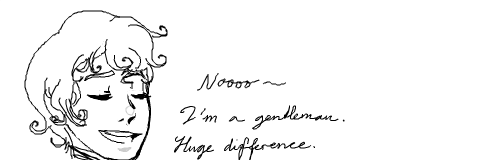 Noooo~
I'm a gentleman.
Huge difference.